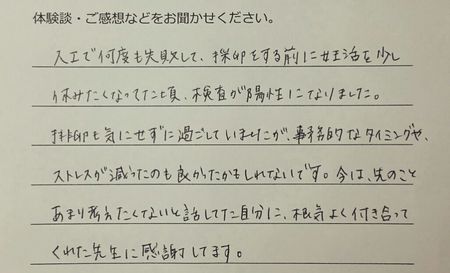 体験談・ご感想などをお聞かせください。
人工で何度も失敗して、採卵をする前に妊活を少し
休みたくなってた頃、検査が陽性になりました。
排卵も気にせずに過ごしていましたが、事務的なタイミングや、
ストレスが減ったのも良かったかもしれないです。今は、先のこと
あまり考えたくないと話してた自分に、根気よく付き合って
くれた先生に感謝してます。